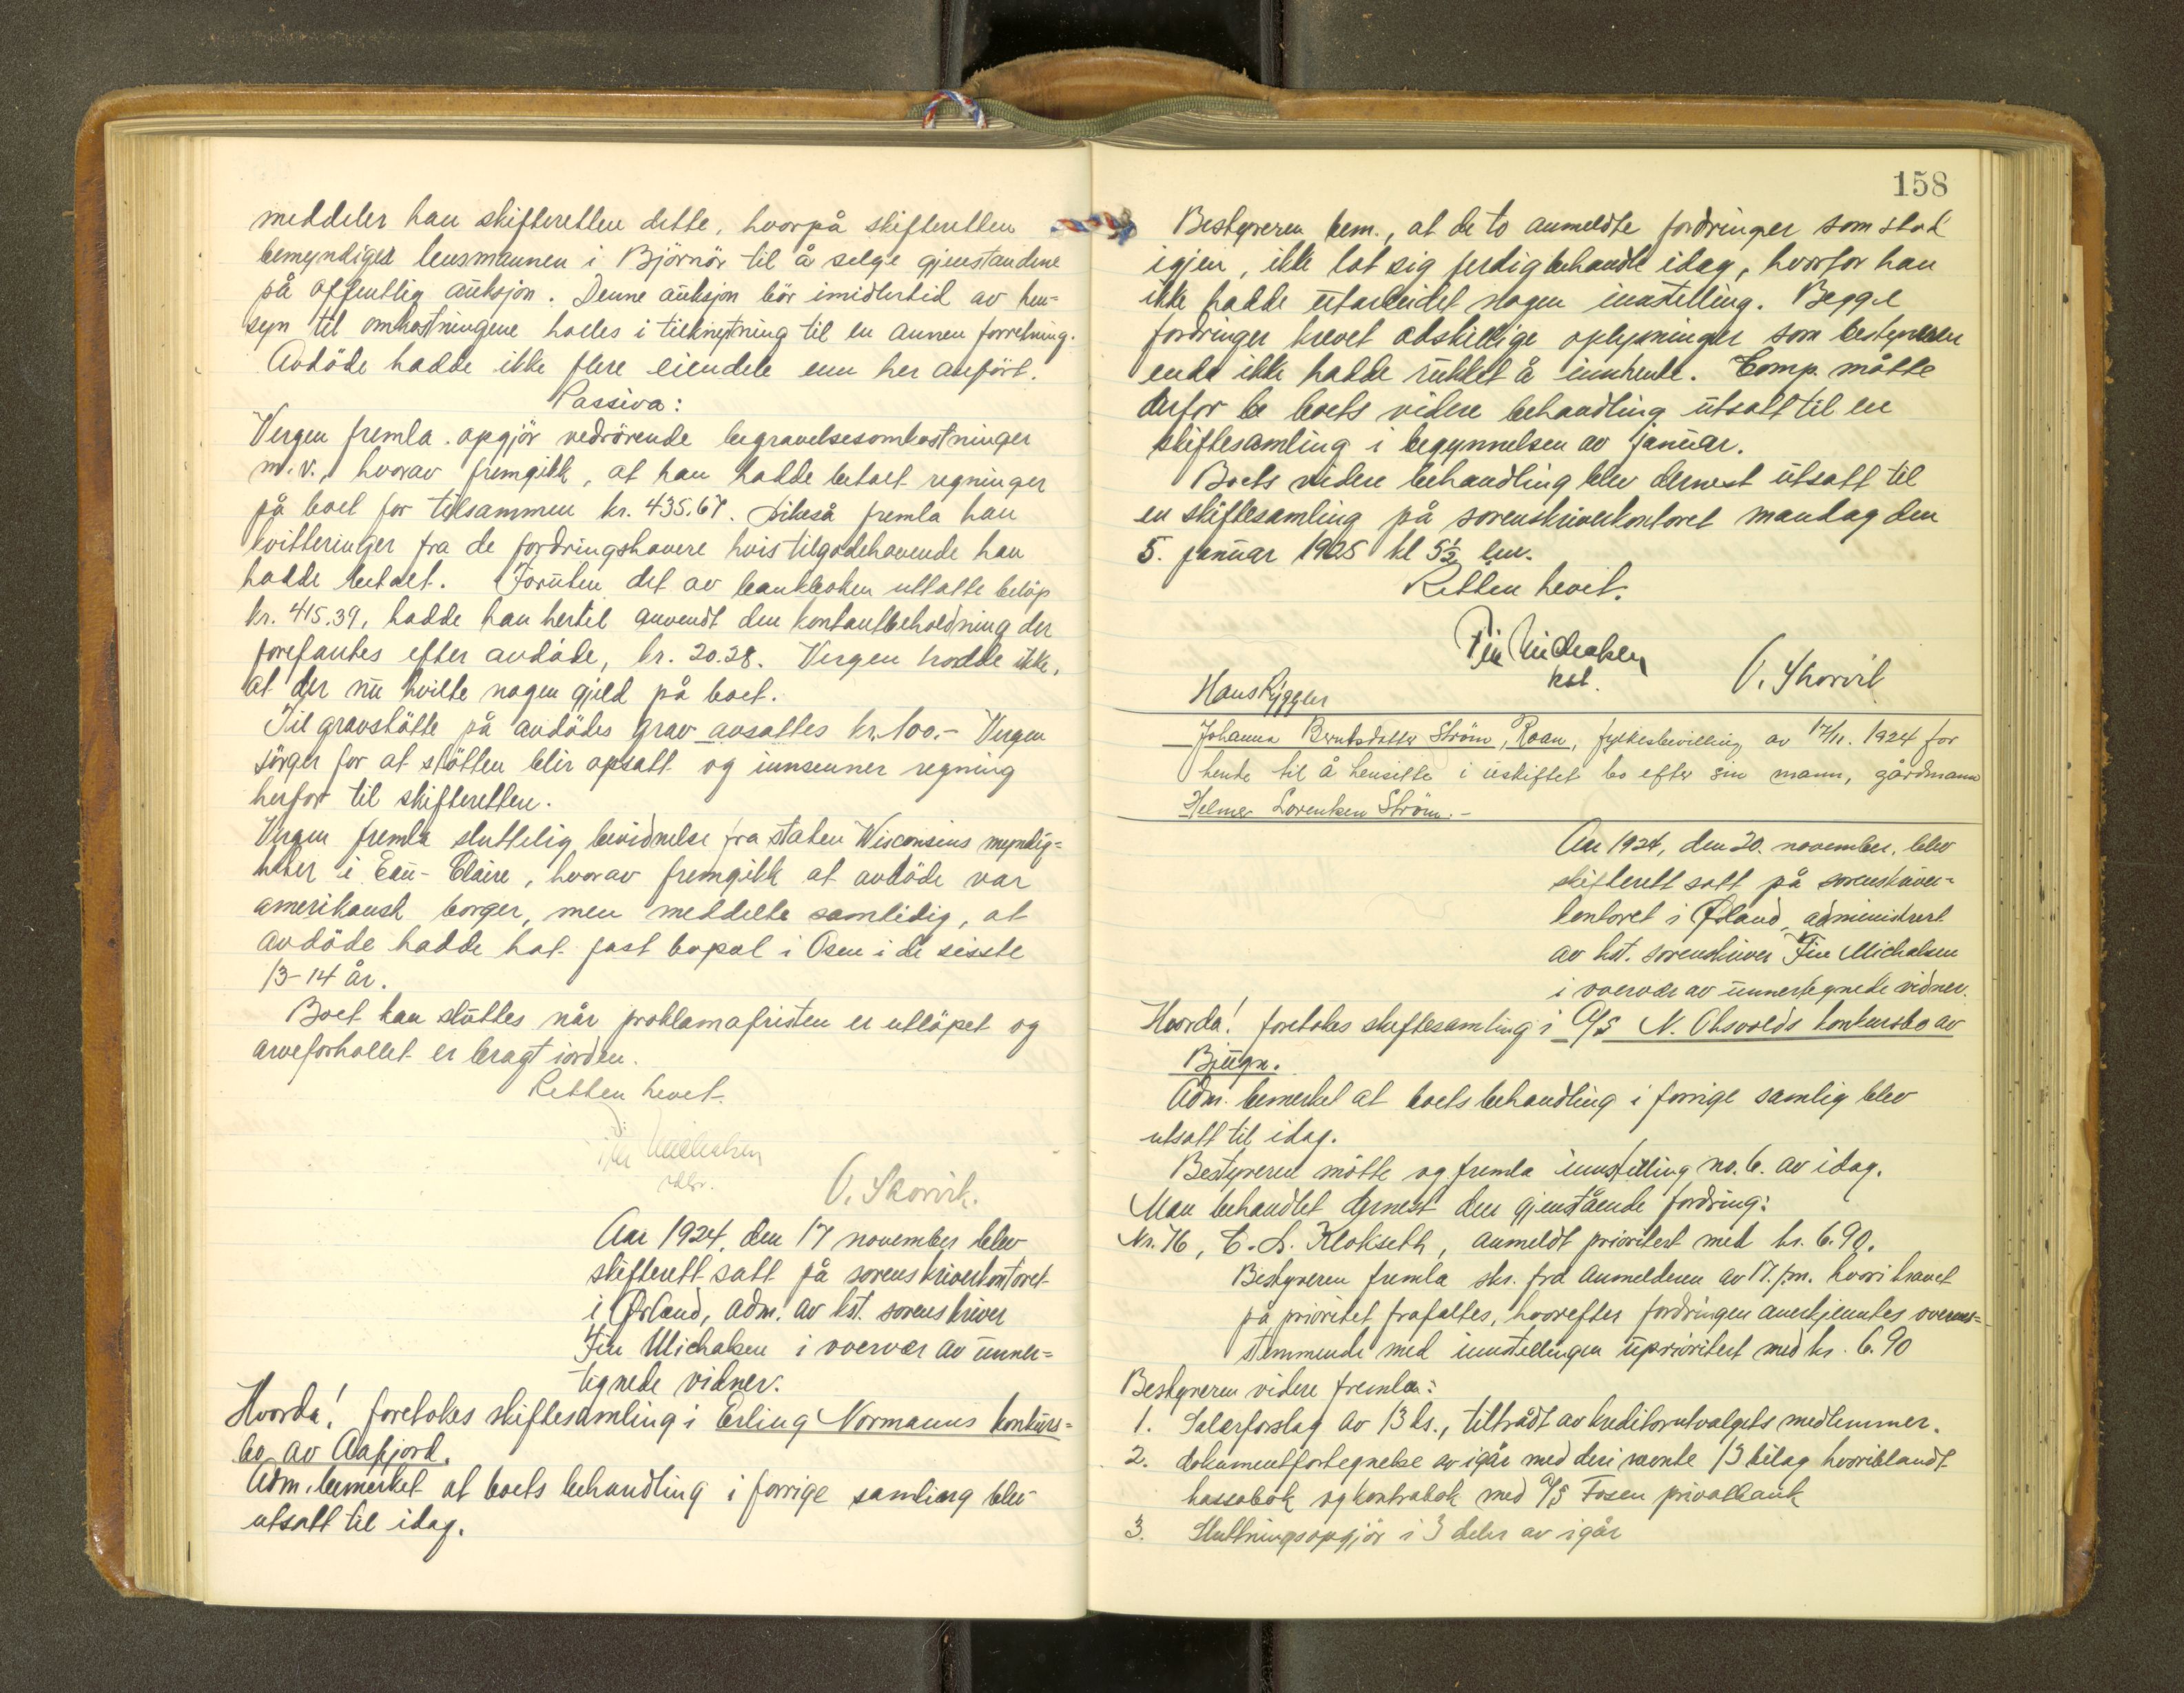 meddeler han skifteretten dette, hvorpå skifteretten
bemyndiger lensmannen i Björnör til å selge gjenstandene
på offentlig auksjon. Denne auksjon bör imidlertid av hen=
syn til omkostningene holdes i tilknytning til en annen forretning.
Avdöde hadde ikke flere eiendele enn her anfört.
Passiva:
Vergen fremla opgjör vedrörende begravelsesomkostninger
m.v., hvorav fremgikk, at han hadde betalt regninger
på boet for tilsammen kr. 435.67. Likeså fremla han
kvitteringer fra de fordringshavere hvis tilgodehavende han
hadde betalt. Foruten det av bankboken uttatte belöp
kr. 415.39, hadde han hertil anvendt den kontantbeholdning der
forefantes efter avdöde, kr. 20.28. Vergen trodde ikke,
at der nu hvilte nogen gjeld på boet.
Til gravstötte på avdödes grav avsattes kr. 100.- Vergen
sörger for at stötten blir opsatt og innsenner regning
herfor til skifteretten.
Vergen fremla sluttelig bevidnelse fra staten Wisconsins myndig=
heter i Eau-Claire, hvorav fremgikk at avdöde var
amerikansk borger, men meddelte samtidig, at
avdöde hadde hat fast bopæl i Osen i de sisste
13-14 år.
Boet kan sluttes når proklamafristen er utlöpet og
arveforholdet er bragt i orden.
Retten hevet.
Fin Michalsen
O. Skorvik.
Aar 1924, den 17 november blev
skifterett satt på sorenskriverkontoret
i Ørland, adm. av kst. sorenskriver
Fin Michalsen i overvær av unner=
tegnede vidner.
Hvorda! foretokes skiftesamling i Erling Normanns konkurs=
bo av Aafjord.
Adm. bemerket at boets behandling i forrige samling blev
utsatt til idag.
158
Bestyreren bem., at de to anmeldte fordringer som stod
igjen, ikke lot sig ferdigbehandle idag, hvorfor han
ikke hadde utarbeidet nogen innstilling. Begge
fordringer krevet adskillige oplysninger som bestyreren
enda ikke hadde rukket å innhente. Comp. måtte
derfor be boets videre behandling utsatt til en
skiftesamling i begynnelsen av januar.
Boets videre behandling blev dernest utsatt til
en skiftesamling på sorenskriverkontoret mandag den
5. januar 1925 kl 5½ em.
Retten hevet.
Fin Michalsen
kst.
O. Skorvik
Hans Rygger
Johanna Berntsdatter Ström, Roan, fylkesbevilling av 17/11. 1924 for
hende til å hensitte i uskiftet bo efter sin mann, gårdmann
Helmer Lorentsen Ström.-
Aar 1924, den 20. november, blev
skifterett satt på sorenskriver=
kontoret i Ørland, administrert
av kst. sorenskriver Fin Michalsen
i overvær av unnertegnede vidner.
Hvorda! foretokes skiftesamling i A/S N. Oksvolds konkursbo av
Bjugn.
Adm. bemerket at boets behandling i forrige samlig blev
utsatt til idag.
Bestyreren mötte og fremla innstilling no. 6. av idag.
Man behandlet dernest den gjenstående fordring:
Nr. 76, C. L. Klokseth, anmeldt prioritert med kr. 6.90.
Bestyreren fremla skr. fra anmelderen av 17. f.m. hvori kravet
på prioritet frafaltes, hvorefter fordringen anerkjentes overens=
stemmende med innstillingen uprioritert med kr. 6.90
Bestyreren videre fremla:
1. Salærforslag av 13 ds., tiltrådt av kreditorutvalgets medlemmer.
2. dokumentfortegnelse av igår med deri nevnte 13 bilag hvoriblandt
kassabok og kontrabok med A/S Fosen privatbank
3. Sluttningsopgjör i 3 deler av igår